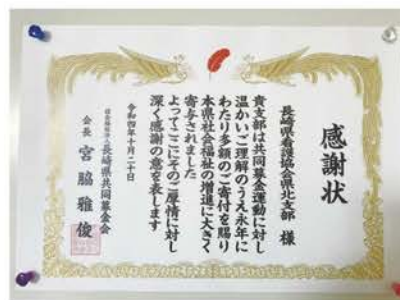 感謝状
長崎県看護協会県北支部 様
貴支部は共同募金運動に対し
温かいご理解のうえ永年に
わたり多額のご寄付を賜り
本県社会福祉の増進に大きく
寄与されました
よってここにそのご厚情に対し
深く感謝の意を表します
令和四年十月二十日
社会福祉法人 長崎県共同募金会
会長 宮脇雅俊